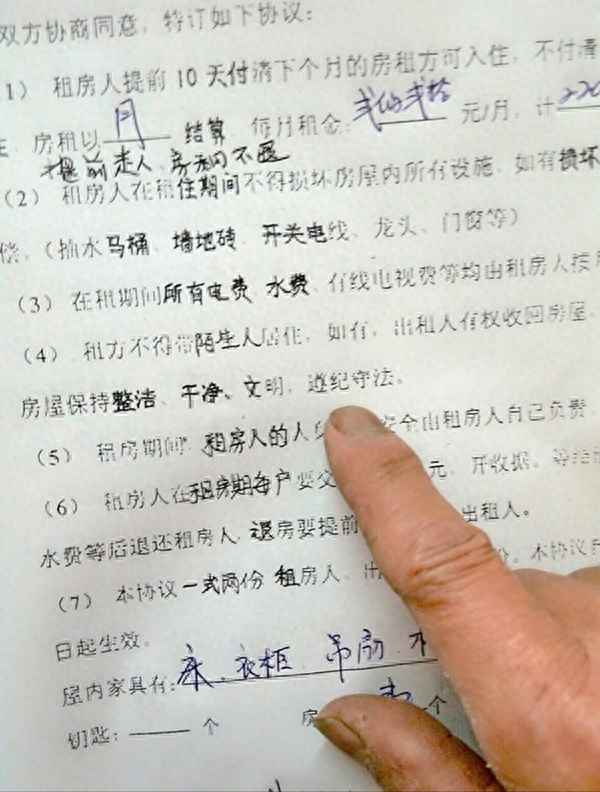 双方协商同意，特订如下协议：
（1） 租房人提前10天付清下个月的房租方可入住，不付清
房租以 月 结算 每月租金：弍佰弍拾 元/月，计 220
提前走人，房租不退
（2） 租房人在租住期间不得损坏房屋内所有设施，如有损坏
偿，（抽水马桶、墙地砖、开关电线、龙头、门窗等）
（3） 在租期间所有电费、水费、有线电视费等均由租房人按月
（4） 租方不得带陌生人居住，如有，出租人有权收回房屋，
房屋保持整洁、干净、文明，遵纪守法。
（5） 租房期间，租房人的人 安全由租房人自己负责，
（6） 租房人在租房期每户要交 元，开收据。等
水费等后退还租房人，退房要提前 出租人。
（7） 本协议一式两份 租房人、出 份。本协议
日起生效。
屋内家具有：床、衣柜、吊扇、
钥匙： 个 房 个